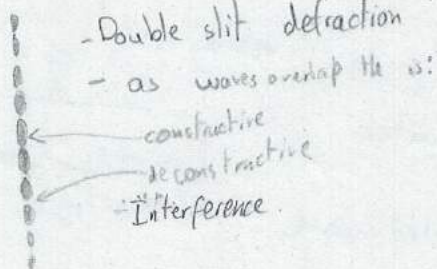 - Double slit defraction
- as waves overlap the is:
constructive
deconstructive
- Interference.